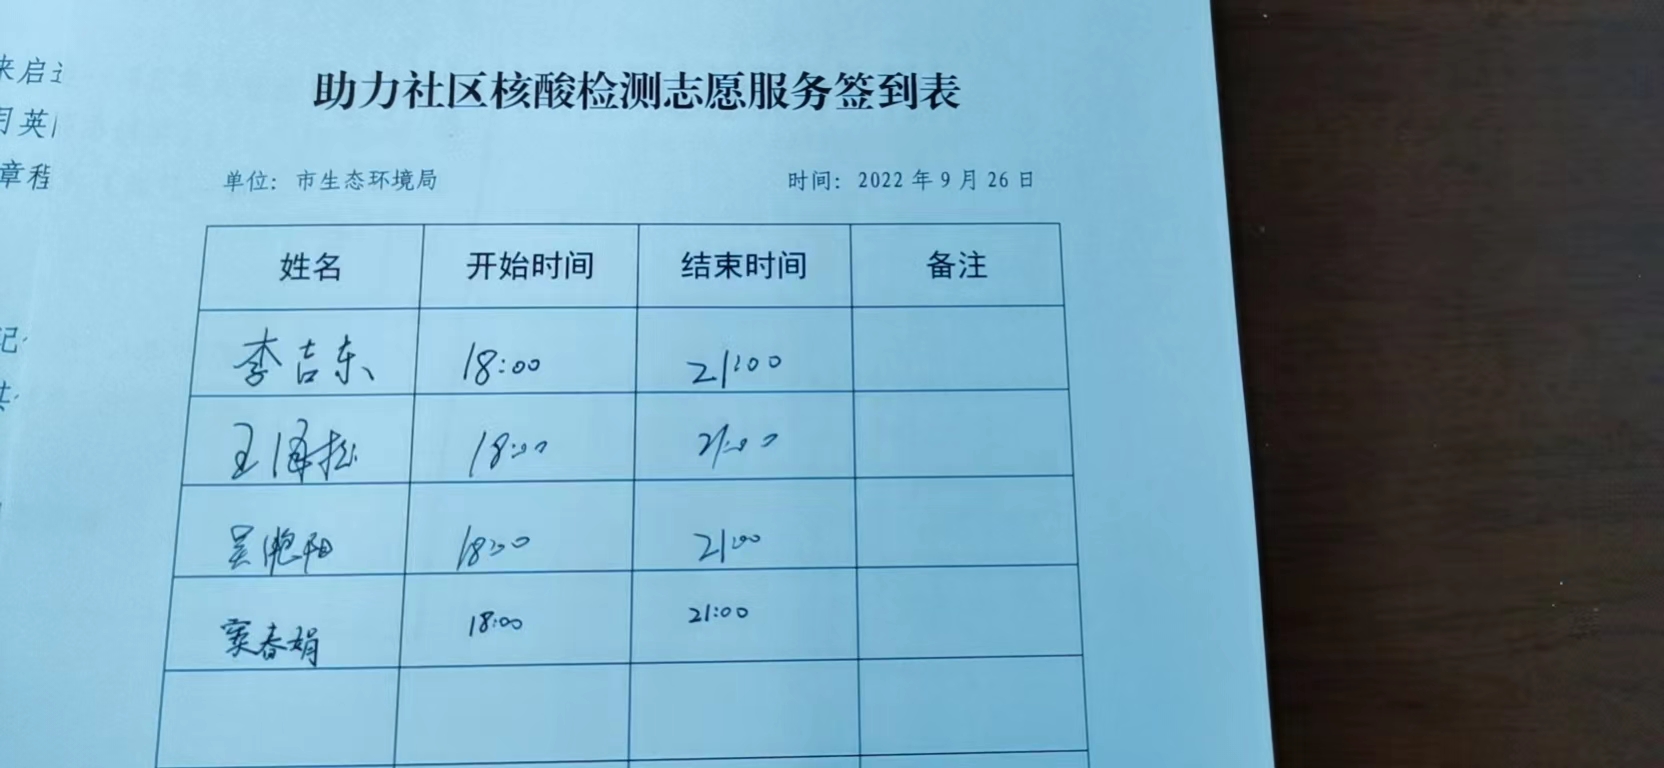 来启
月英
章程
记
助力社区核酸检测志愿服务签到表
单位：市生态环境局 时间：2022年9月26日
姓名 开始时间 结束时间 备注
李吉东 18:00 21:00
王泽松 18:00 21:00
吴艳阳 18:00 21:00
窦春娟 18:00 21:00